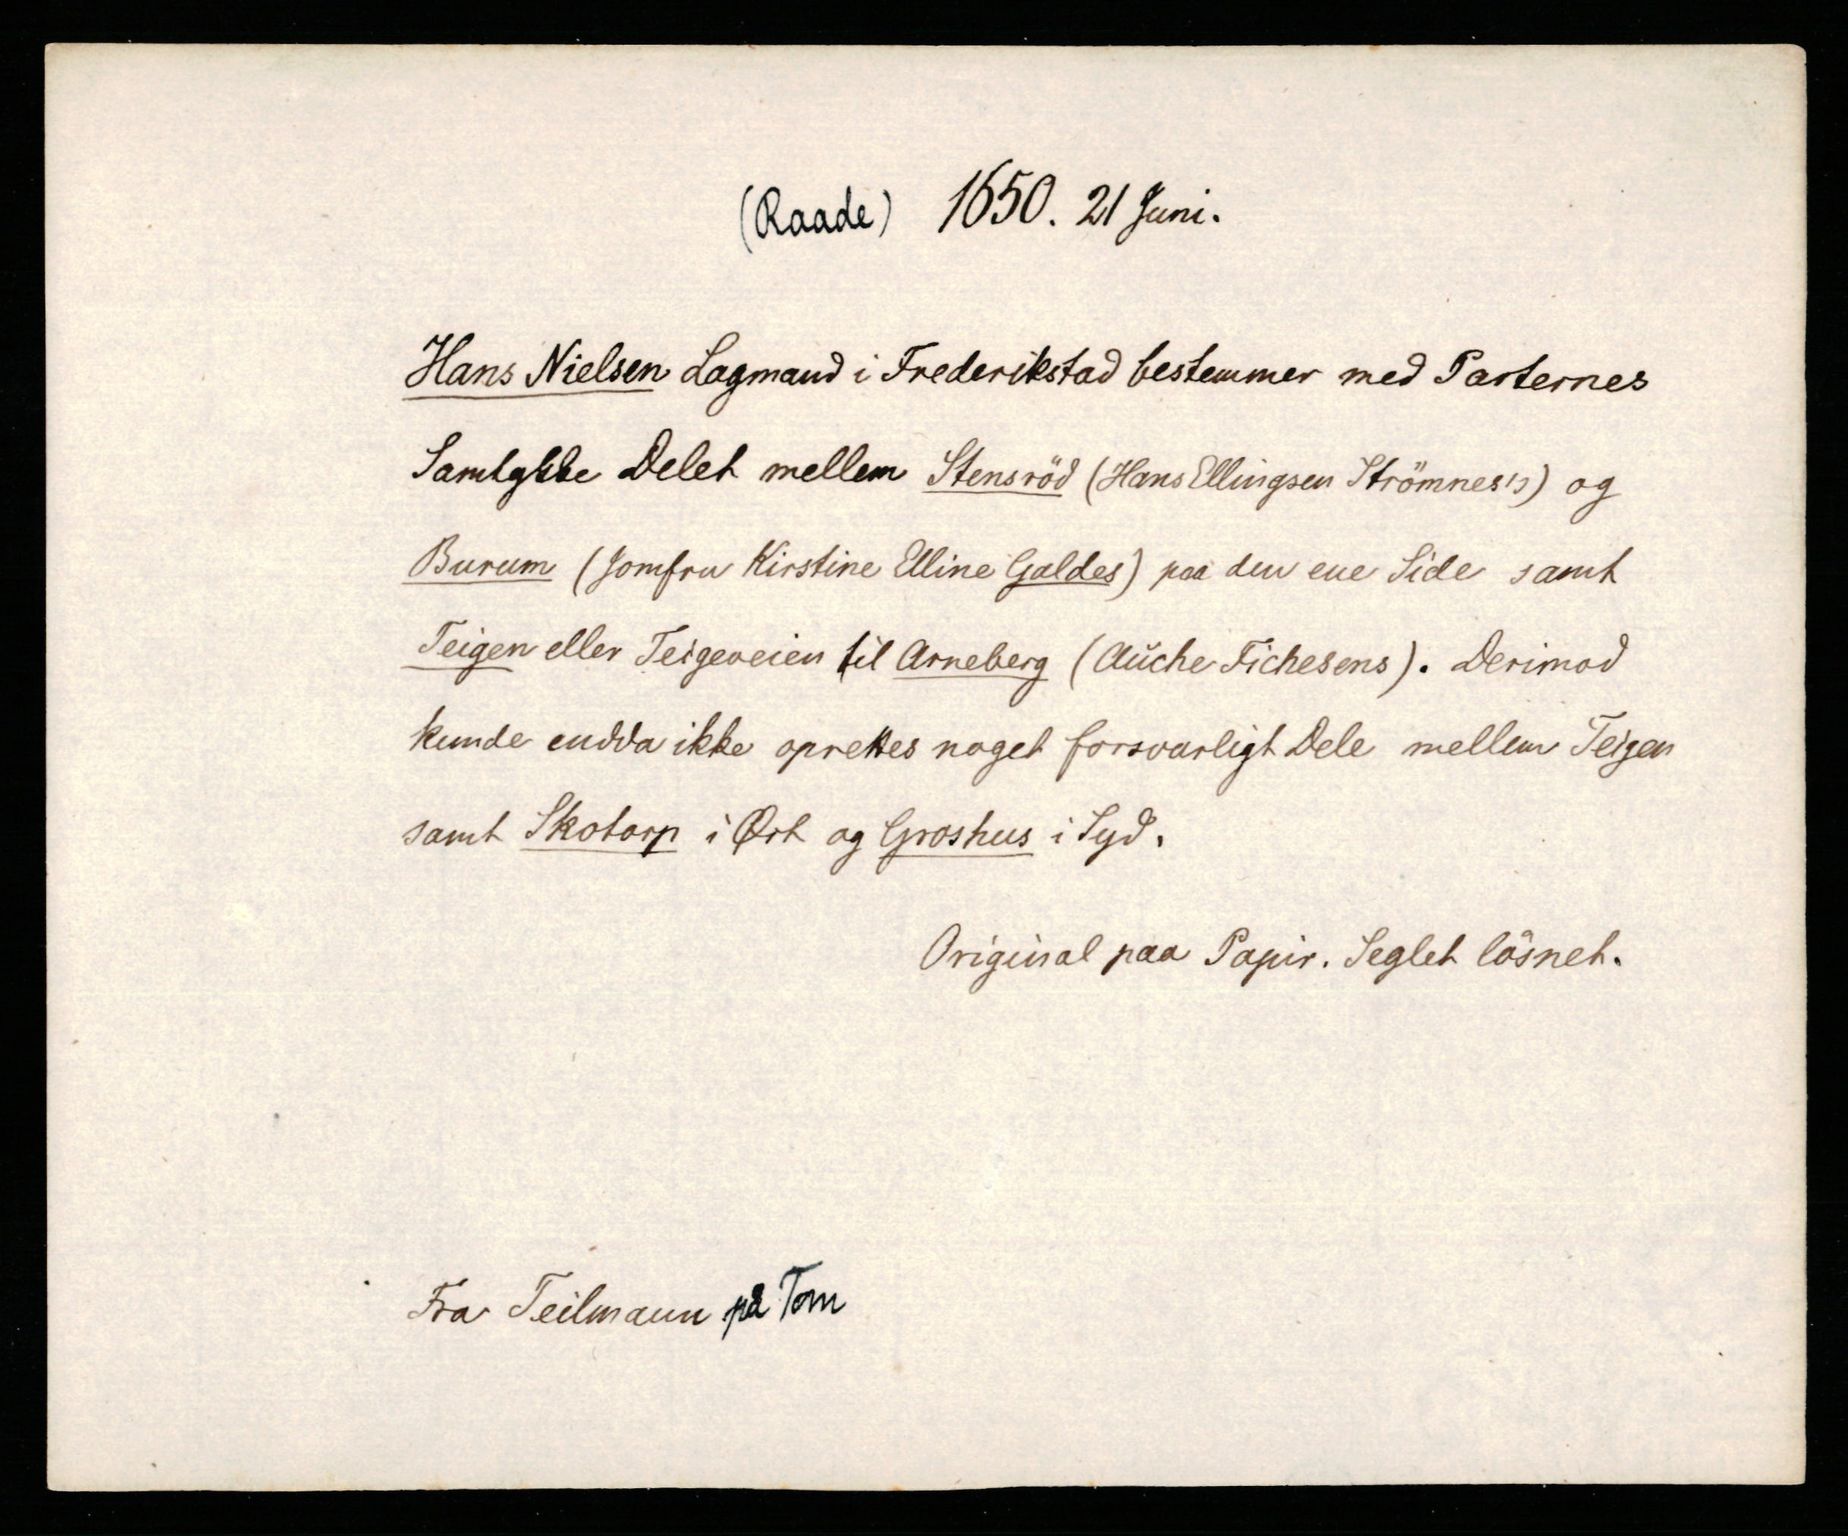 (Raade) 1650. 21 Juni.
Hans Nielsen Lagmand i Frederikstad bestemmer med Parternes
Samtykke Delet mellem Stensröd (Hans Ellingsen Strömnes's) og
Burum (Jomfru Kirstine Elline Galdes) paa den ene Side samt
Teigen eller Teigeveien til Arneberg (Auche Fichesens). Derimod
kunde endda ikke oprettes noget forsvarligt Dele mellem Teigen
samt Skotorp i Øst og Groshus i Syd.
Original paa Papir. Seglet lösnet.
Fra Teilmann på Tom